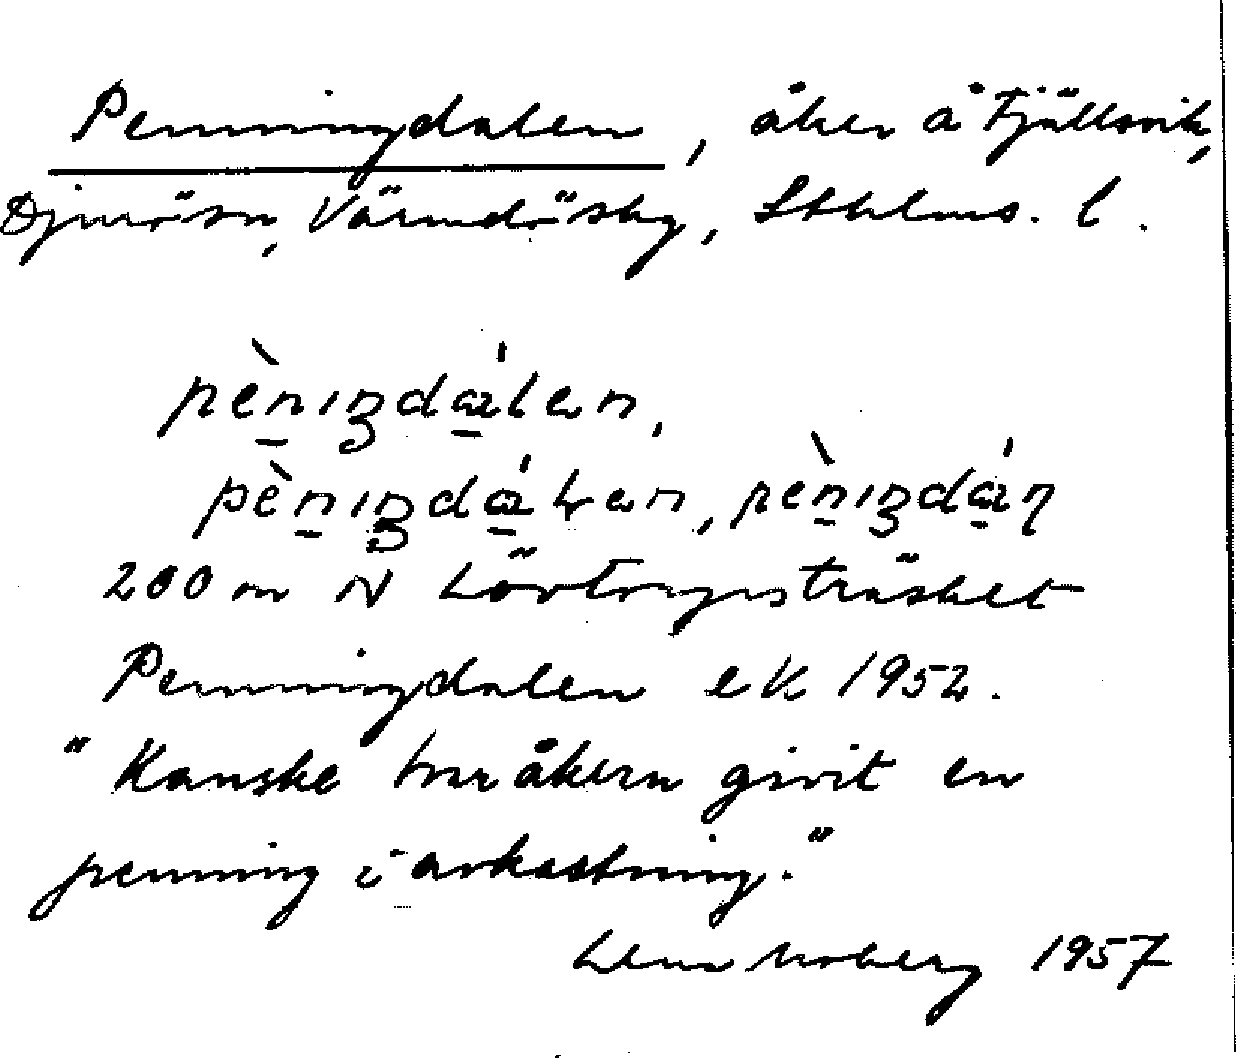 Penningdalen, åker å Fjällsvik,
Djurösn, Värmdö sky, Sthlms. l.
pèniŋdálen,
pèniŋdálen, pèniŋdáņ
200 m N Lövtorpsträsket
Penningdalen ek 1952.
"Kanske har åkern givit en
penning i avkastning."
Lena Moberg 1957